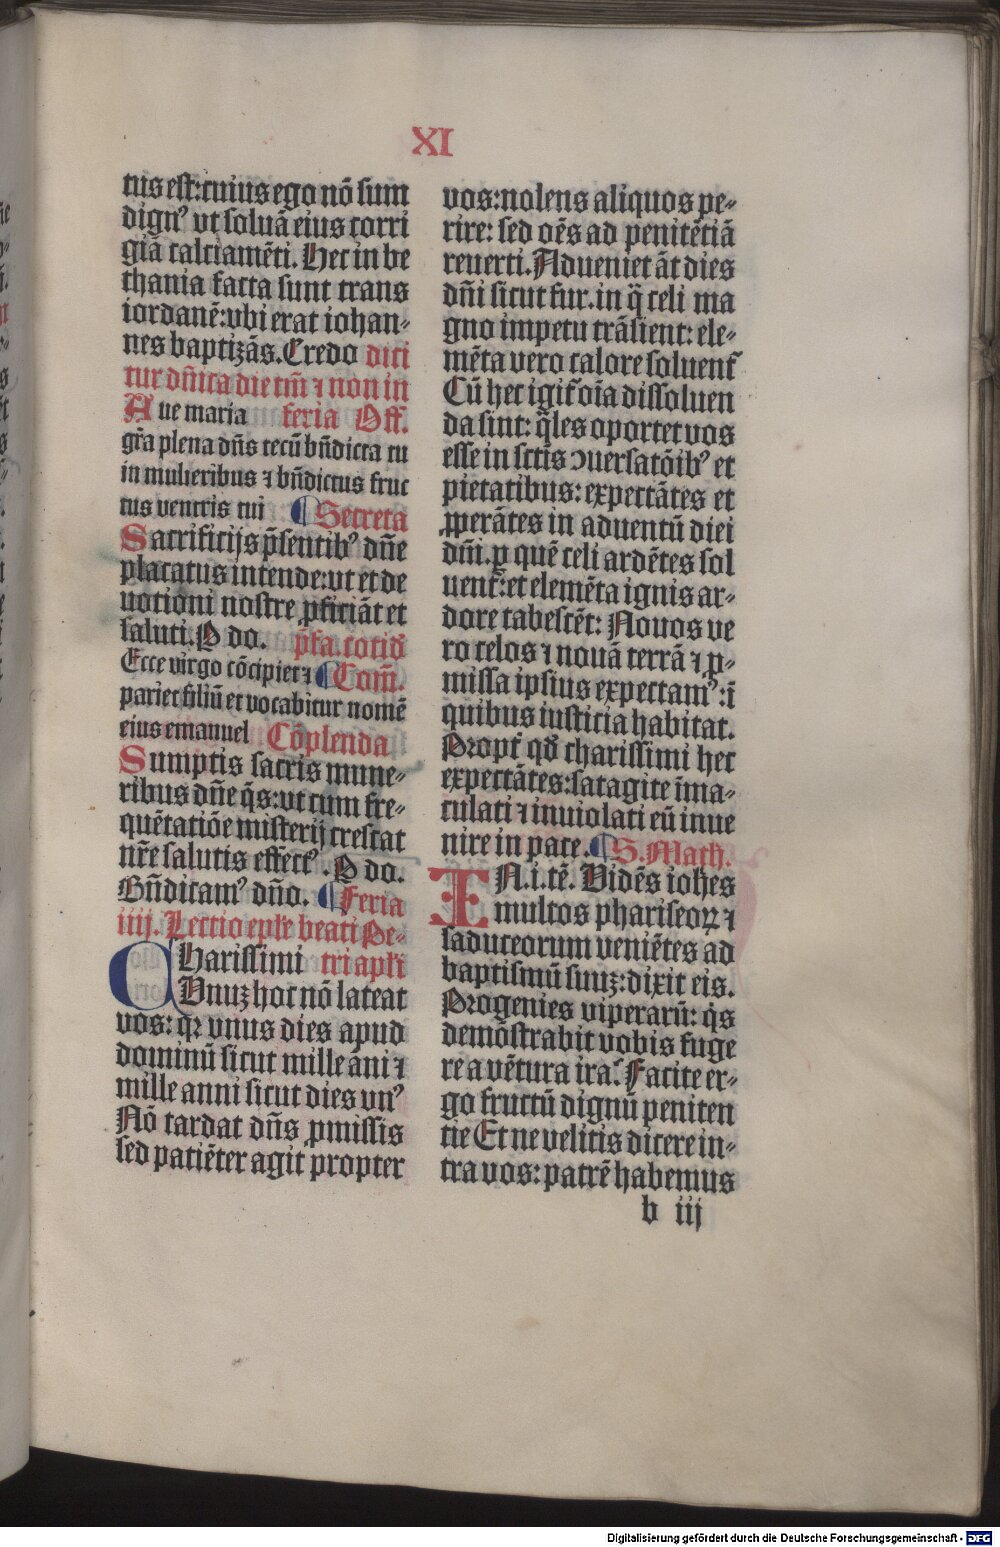 XI
tus est: cuius ego nõ sum
dignꝰ vt soluã eius corri
giã calciamẽti. Hec in be
thania facta sunt trans
iordanẽ: vbi erat iohan-
nes baptizãs. Credo dici
tur dñica die tm̃ ⁊ non in
Aue maria feria Off.
gr̃a plena dñs tecũ bñdicta tu
in mulieribus ⁊ bñdictus fruc
tus ventris tui ¶ Secreta
Sacrificijs p̃sentibꝰ dñe
placatus intende: vt et de
uotioni nostre ꝓficiãt et
saluti. P do. p̃fa. cotid̃
Ecce virgo cõcipiet ⁊ ¶ Com̃.
pariet filiũ et vocabitur nomẽ
eius emanuel Cõplenda
Sumptis sacris mune-
ribus dñe q̃s: vt cum fre-
quẽtatiõe misterij crescat
nr̃e salutis effectꝰ. P do.
Bñdicamꝰ dño. ¶ Feria
iiij. Lectio epl̃e beati Pe-
CHarissimi tri apl̃i
Vnuꝫ hoc nõ lateat
vos: qꝛ vnus dies apud
dominũ sicut mille ãni ⁊
mille anni sicut dies vnꝰ
Nõ tardat dñs ꝓmissis
sed patiẽter agit propter
vos: nolens aliquos pe-
rire: sed oẽs ad penitẽtiã
reuerti. Adueniet ãt dies
dñi sicut fur. in q̃ celi ma
gno impetu trãsient: ele-
mẽta vero calore soluent᷑
Cũ hec igit᷑ oĩa dissoluen
da sint: q̃les oportet vos
esse in sctĩs ↄuersatõibꝰ et
pietatibus: expectãtes et
ꝓperãtes in aduentũ diei
dñi. ꝑ quẽ celi ardẽtes sol
uent᷑: et elemẽta ignis ar-
dore tabescẽt: Nouos ve
ro celos ⁊ nouã terrã ⁊ ꝓ-
missa ipsius expectamꝰ: ĩ
quibus iusticia habitat.
Propt̃ qd̃ charissimi hec
expectãtes: satagite ĩma-
culati ⁊ inuiolati eũ inue
nire in pace. ¶ S. Math.
IN. i. tẽ. Vidẽs iohẽs
multos phariseoꝝ ⁊
saduceorum veniẽtes ad
baptismũ suuꝫ: dixit eis.
Progenies viperarũ: q̃s
demõstrabit vobis fuge
re a vẽtura ira? Facite er-
go fructũ dignũ peniten
tie Et ne velitis dicere in-
tra vos: patrẽ habemus
b iij
Digitalisierung gefördert durch die Deutsche Forschungsgemeinschaft - DFG